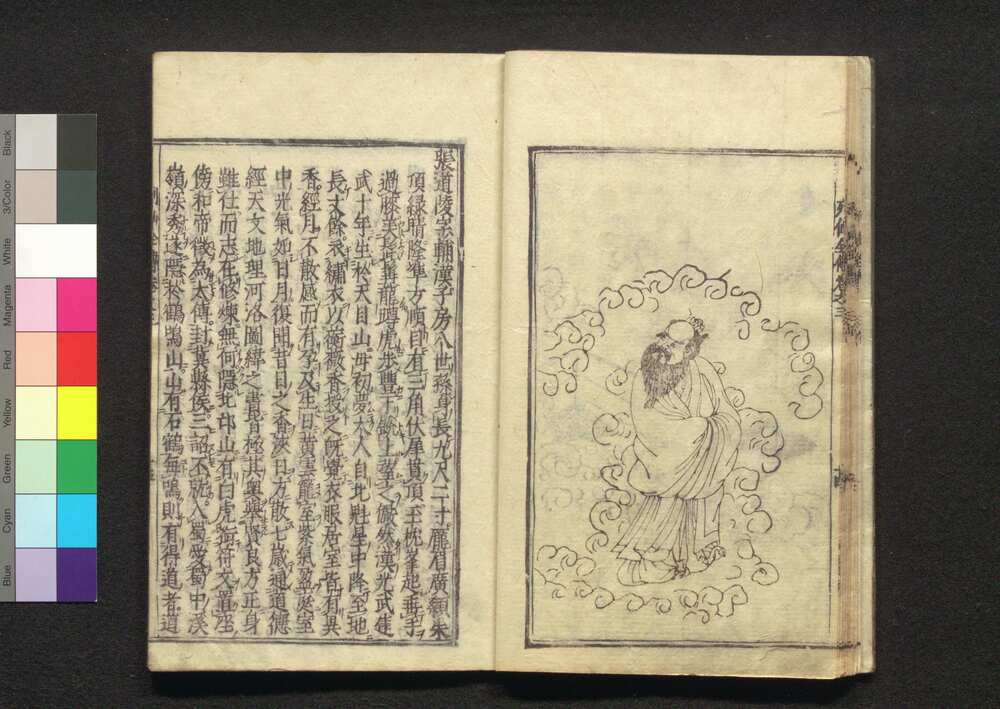 Black
3/Color
White
Magenta
Red
Yellow
Green
Cyan
Blue
列仙全傳卷之三
張道陵字輔漢子房八世孫身長九尺二寸龐眉廣顙朱
頂綠睛隆準方頤目有三角伏犀貫頂玉枕峯起垂手
過膝美髭髯龍蹲虎步豐下銳上望之儼然漢光武建
武十年生於天目山母初夢大人自北魁星中降至地
長丈餘衣繡衣以蘅薇香授之既覺衣服居室皆有異
香經月不散感而有孕及生日黃雲籠室紫氣盈庭室
中光氣如日月復聞昔日之香浹日方散七歲通道德
經天文地理河洛圖緯之書皆極其奧舉賢良方正身
雖仕而志在修煉無何隱北邙山有白虎銜符文置座
傍和帝徵為太傅封冀縣侯三詔不就入蜀愛蜀中溪
嶺深秀遂隱於鶴鳴山山有石鶴無鳴則有得道者道